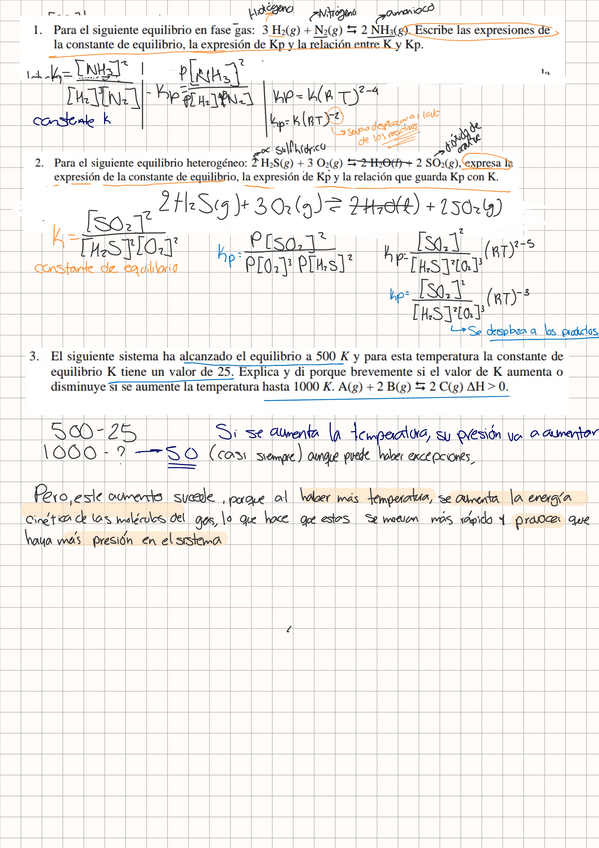 Hidrógeno →Nitrógeno →amoniaco
1. Para el siguiente equilibrio en fase gas: 3 H₂(g) + N₂(g) ⇆ 2 NH₃(g). Escribe las expresiones de
la constante de equilibrio, la expresión de Kp y la relación entre K y Kp.
K = [NH₃]² / [H₂]³[N₂]
Kp = P[NH₃]² / P[H₂]³P[N₂]
Kp = K(RT)²⁻⁴
Kp = K(RT)⁻²
constante K
de los reactivos
ac sulfhídrico
2. Para el siguiente equilibrio heterogéneo: 2 H₂S(g) + 3 O₂(g) ⇆ 2 H₂O(ℓ) + 2 SO₂(g), expresa la
expresión de la constante de equilibrio, la expresión de Kp y la relación que guarda Kp con K.
2H₂S(g) + 3O₂(g) ⇌ 2H₂O(ℓ) + 2SO₂(g)
K = [SO₂]² / [H₂S]²[O₂]²
constante de equilibrio
Kp: P[SO₂]² / P[O₂]³ P[H₂S]²
Kp: [SO₂]² / [H₂S]²[O₂]³ (RT)²⁻⁵
Kp= [SO₂]² / [H₂S]²[O₂]³ (RT)⁻³
↳Se desplaza a los productos
3. El siguiente sistema ha alcanzado el equilibrio a 500 K y para esta temperatura la constante de
equilibrio K tiene un valor de 25. Explica y di porque brevemente si el valor de K aumenta o
disminuye si se aumente la temperatura hasta 1000 K. A(g) + 2 B(g) ⇆ 2 C(g) ΔH > 0.
500 - 25
1000 - ? → 50
Si se aumenta la temperatura, su presión va a aumentar
(casi siempre) aunque puede haber excepciones,
Pero, este aumento sucede, porque al haber más temperatura, se aumenta la energía
cinética de las moléculas del gas, lo que hace que estas se muevan más rápido y provocar que
haya más presión en el sistema